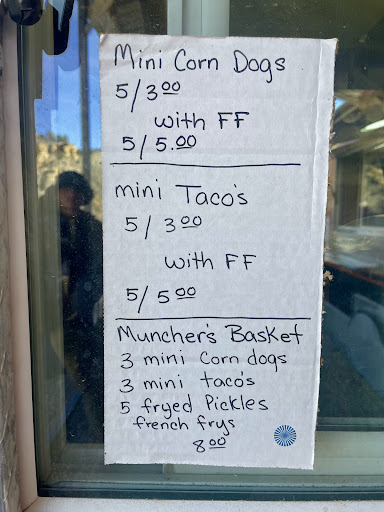 Mini Corn Dogs
5/3.00
with FF
5/5.00
mini Taco's
5/3.00
with FF
5/5.00
Muncher's Basket
3 mini Corn dogs
3 mini taco's
5 fryed Pickles
french frys
8.00